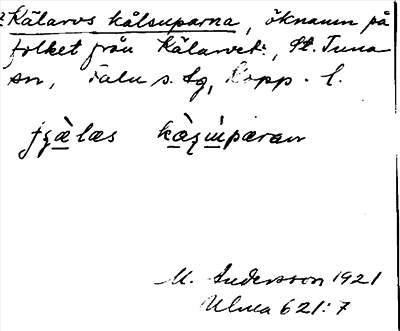 Kälarvs kålsuparna, öknamn på
folket från Kälarvet, St. Tuna
sn, Falu s. lg, Kopp. l.
M. Andersson 1921
Ulma 621:7